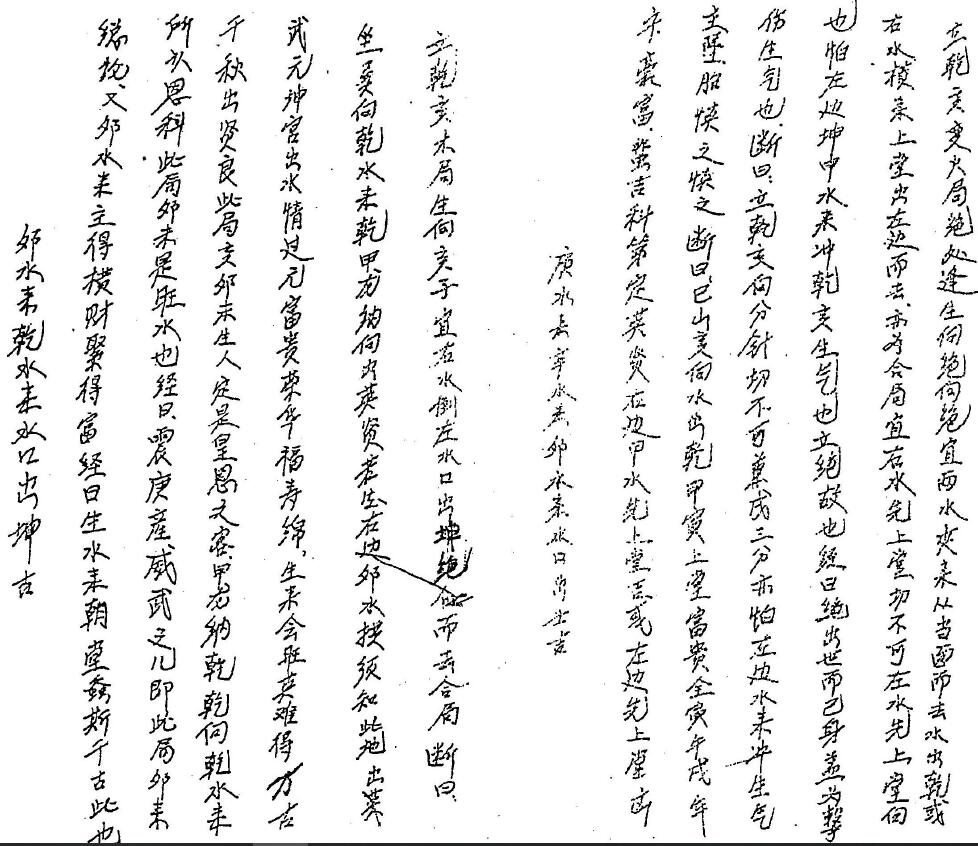 立乾亥变火局绝处逢生向绝何绝宜两水夹来从当面而去水出乾或
右水横来上堂出左边而去亦为合局宜右水先上堂切不可左水先上堂向
也怕左边坤申水来冲乾亥生气也立绝故也经曰绝出世而己身盖为击
伤生气也断曰立乾亥向分针切不可兼戌三分亦怕左边水来冲生气
主坠胎慎之慎之断曰巳山亥向水出乾甲寅上堂富贵全寅午戌年
来豪富登科第定英贤右边甲水先上堂吉或左边先上堂凶
庚水去辛水来卯水来水口出吉
立乾亥木局生向亥子宜右水倒左水口出坤绝而去合局断曰
坐巽向乾水来乾甲方纳向出英贤若生右边卯水横须知此地出英
武元坤宫出水情过元富贵荣华福寿绵生来会旺英难得方吉
千秋出贤良此局亥卯未生人定是皇恩文客甲方纳乾乾向乾水来
所以恩科此局卯未是旺水也经曰震庚产威武之儿即此局卯来
总论又卯水来主得横财聚得富经曰生水来朝堂螽斯千古此也
卯水来乾水来水口出坤吉